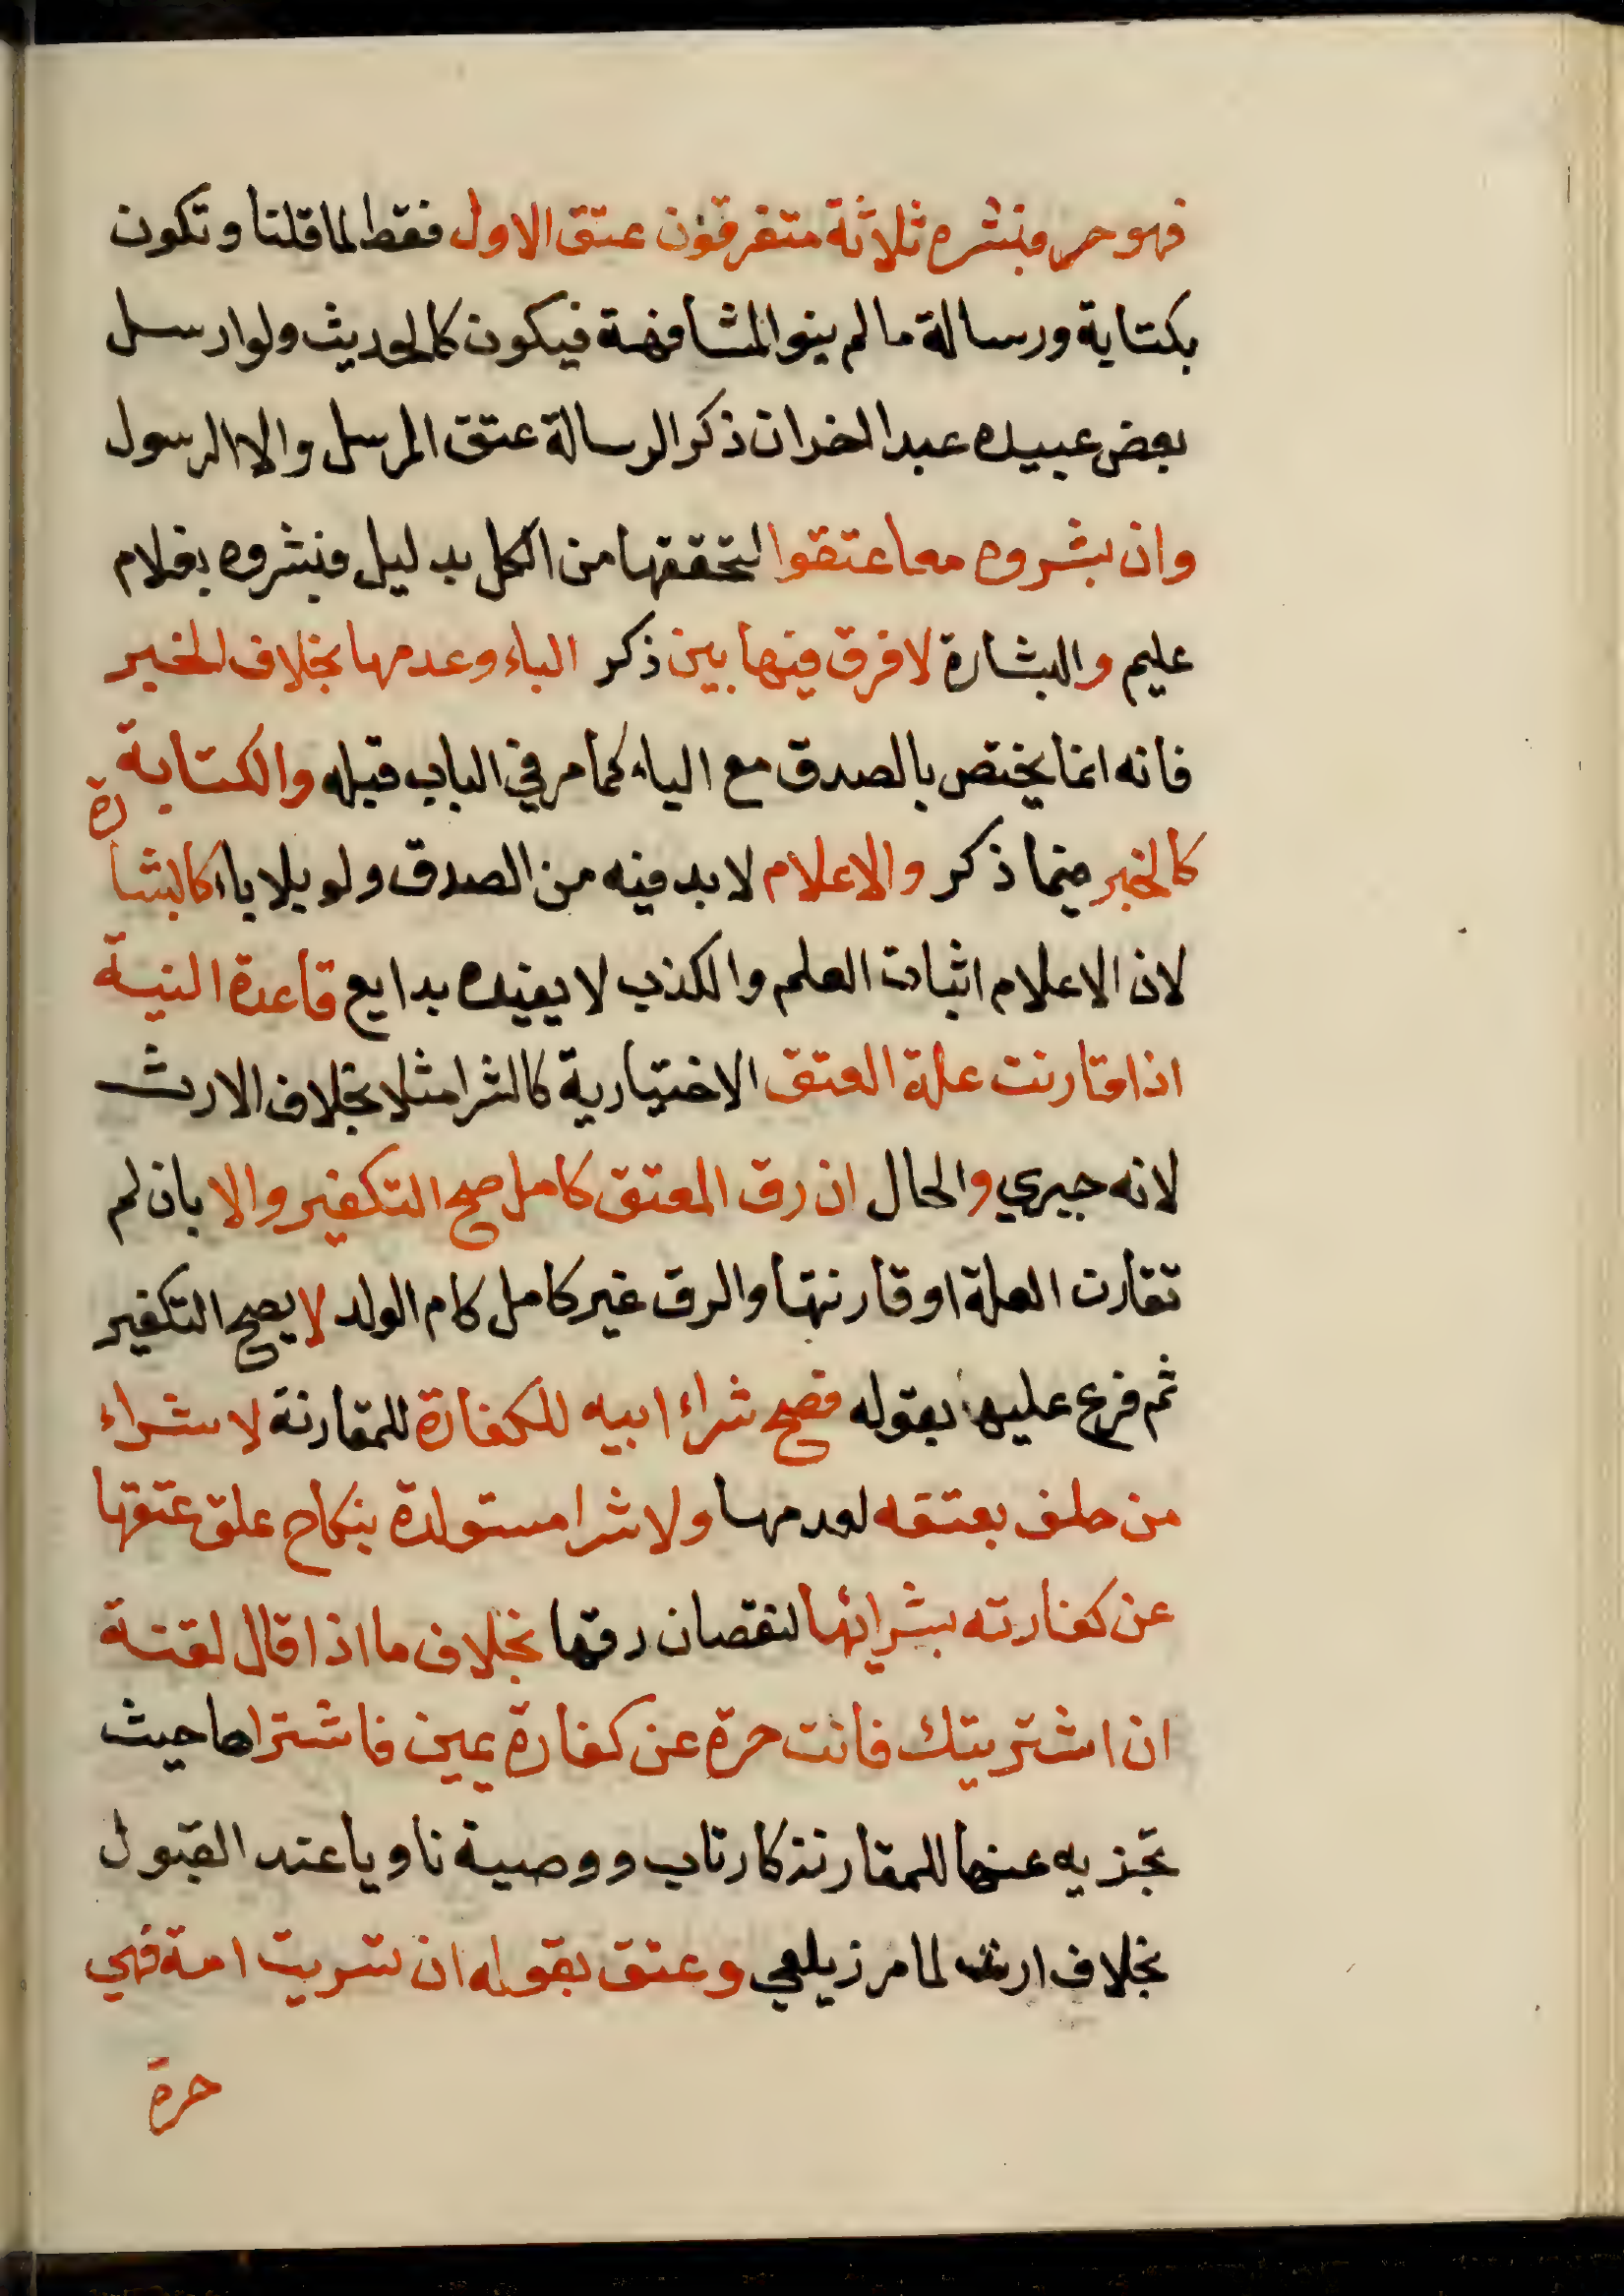 فهو حر فبشره ثلاثة متفرقون عتق الاول فقط لما قلنا وتكون
بكتابة ورسالة ما لم ينو المشافهة فيكون كالحديث ولو ارسل
بعض عبيده عبدا اخر ان ذكر الرسالة عتق المرسل والا الرسول
وان بشروه معا عتقوا لتحققها من الكل بدليل فبشروه بغلام
عليم والبشارة لا فرق فيها بين ذكر الباء وعدمها بخلاف الخبر
فانه انما يختص بالصدق مع الباء كما مر في الباب قبله والكتابة
كالخبر فيما ذكر والاعلام لا بد فيه من الصدق ولو بلا باء كالبشارة
لان الاعلام اثبات العلم والكذب لا يفيده بدايع قاعدة النية
اذا قارنت علة العتق الاختيارية كالشرا مثلا بخلاف الارث
لانه جبري والحال ان رق المعتق كامل صح التكفير والا بان لم
تقارن العلة او قارنتها والرق غير كامل كام الولد لا يصح التكفير
ثم فرع عليها بقوله فصح شراء ابيه للكفارة للمقارنة لا شراء
من حلف بعتقه لعدمها ولا شرا مستولدة بنكاح علق عتقها
عن كفارته بشرائها لنقصان رقها بخلاف ما اذا قال لقنة
ان اشتريتك فانت حرة عن كفارة يمين فاشتراها حيث
تجزيه عنها للمقارنة كارتاب ووصية ناويا عند القبول
بخلاف ارث لما مر زيلعي وعتق بقوله ان تسريت امة فهي
حرة